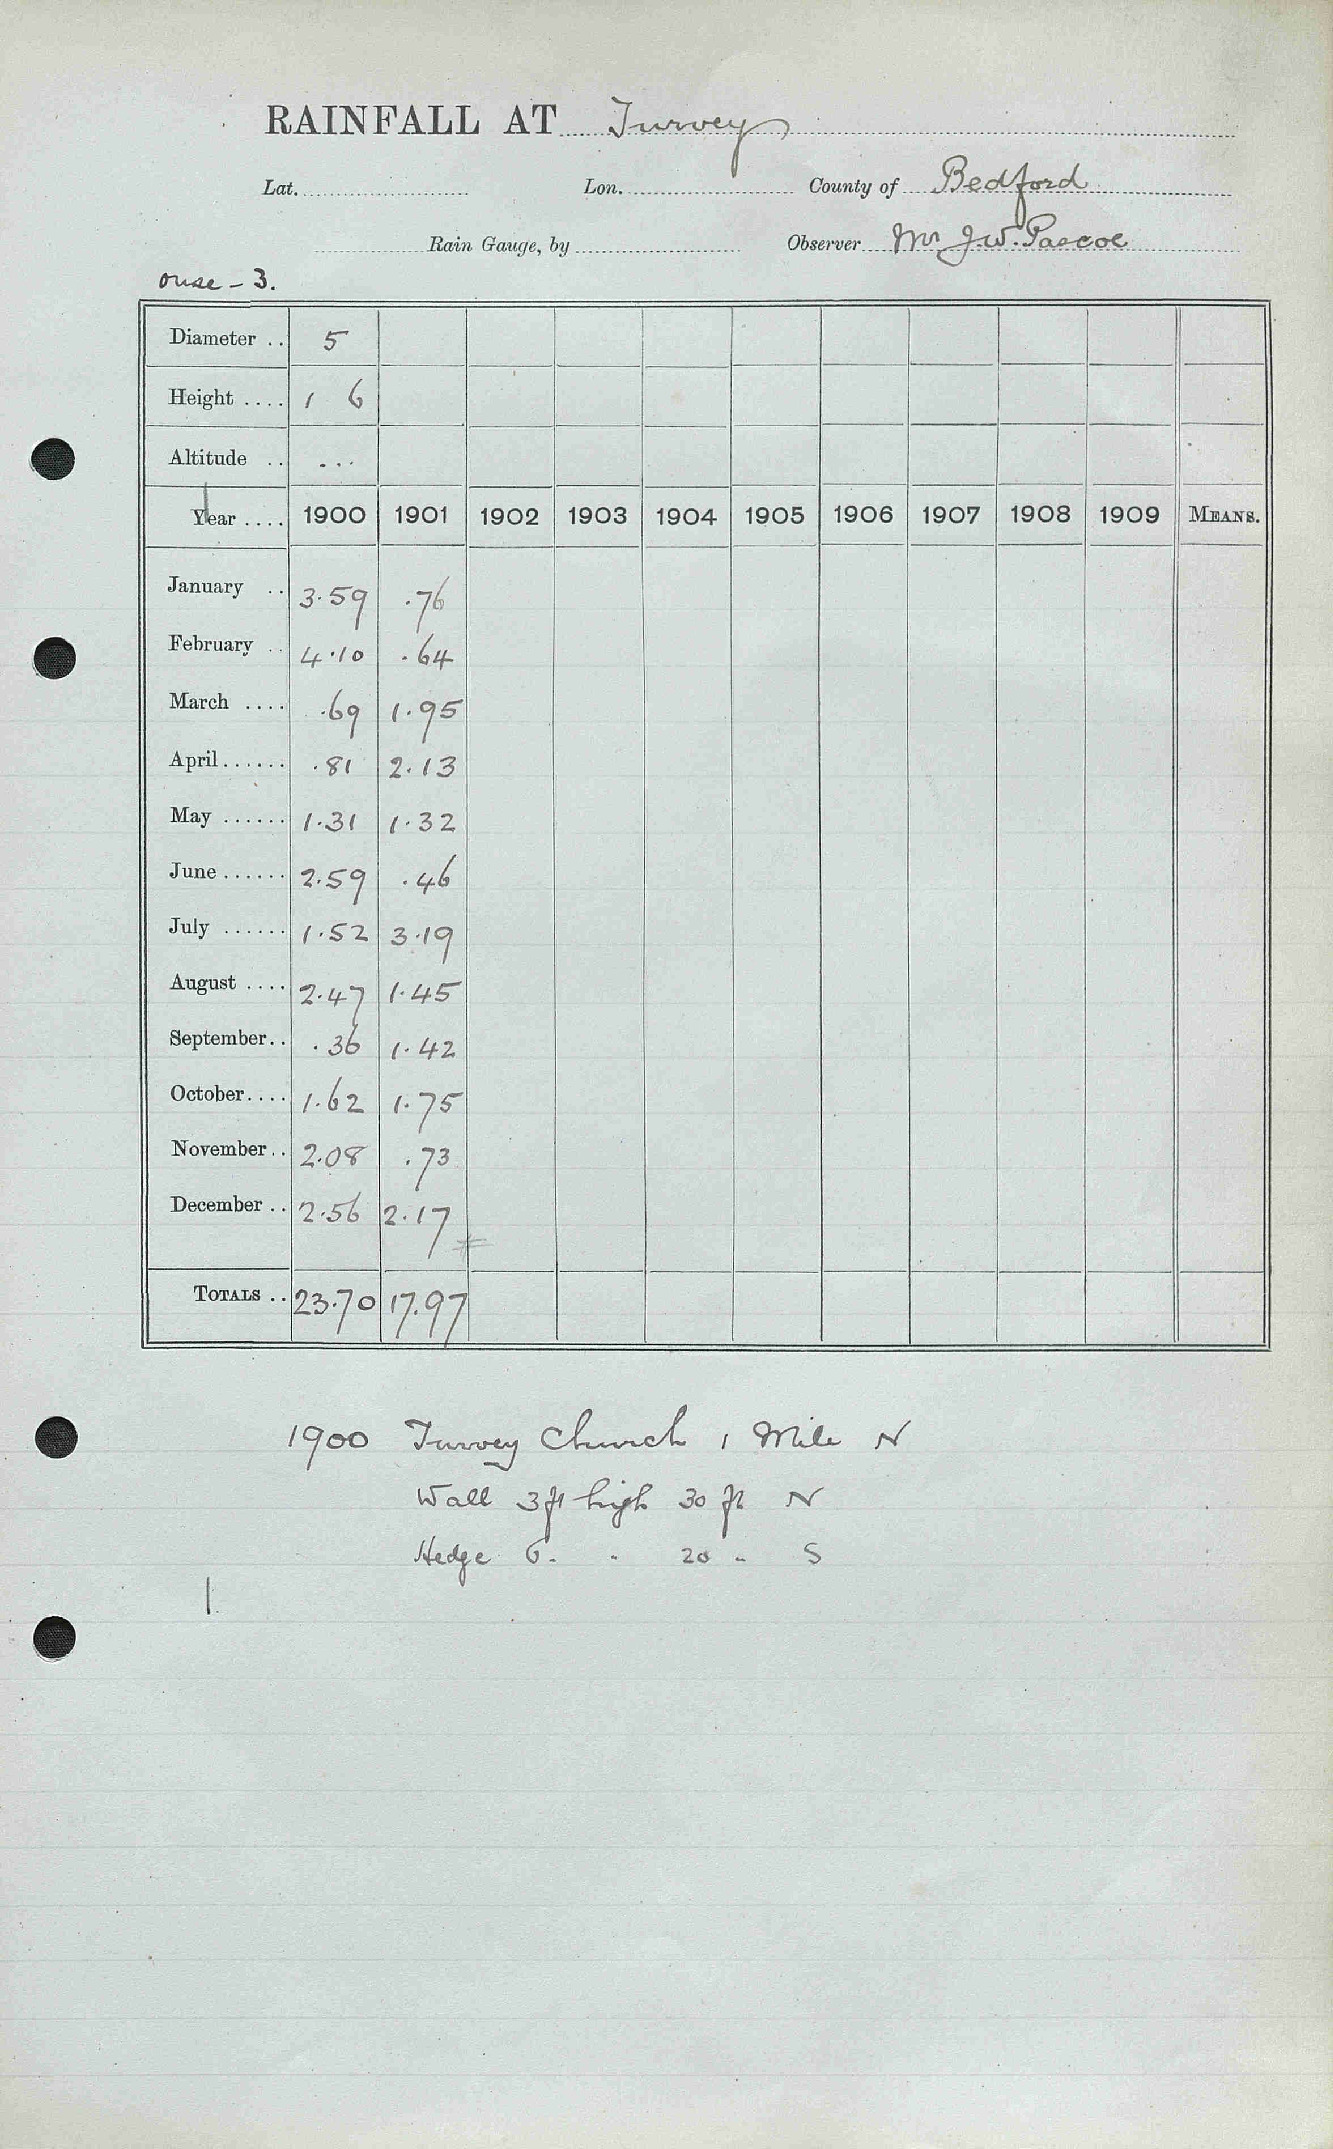 RAINFALL AT Turvey
Lat. Lon. County of Bedford
Rain Gauge, by Observer Mr J.W. Pascoe
Ouse - 3.
Diameter .. 5
Height .... 1 6
Altitude .. ...
Year .... 1900 1901 1902 1903 1904 1905 1906 1907 1908 1909 MEANS.
January .. 3.59 .76
February .. 4.10 .64
March .... .69 1.95
April ...... .81 2.13
May ...... 1.31 1.32
June ...... 2.59 .46
July ...... 1.52 3.19
August .... 2.47 1.45
September .. .36 1.42
October .... 1.62 1.75
November .. 2.08 .73
December .. 2.56 2.17
TOTALS .. 23.70 17.97
1900 Turvey Church 1 Mile N
Wall 3 ft high 30 ft N
Hedge 6 " " 20 " S